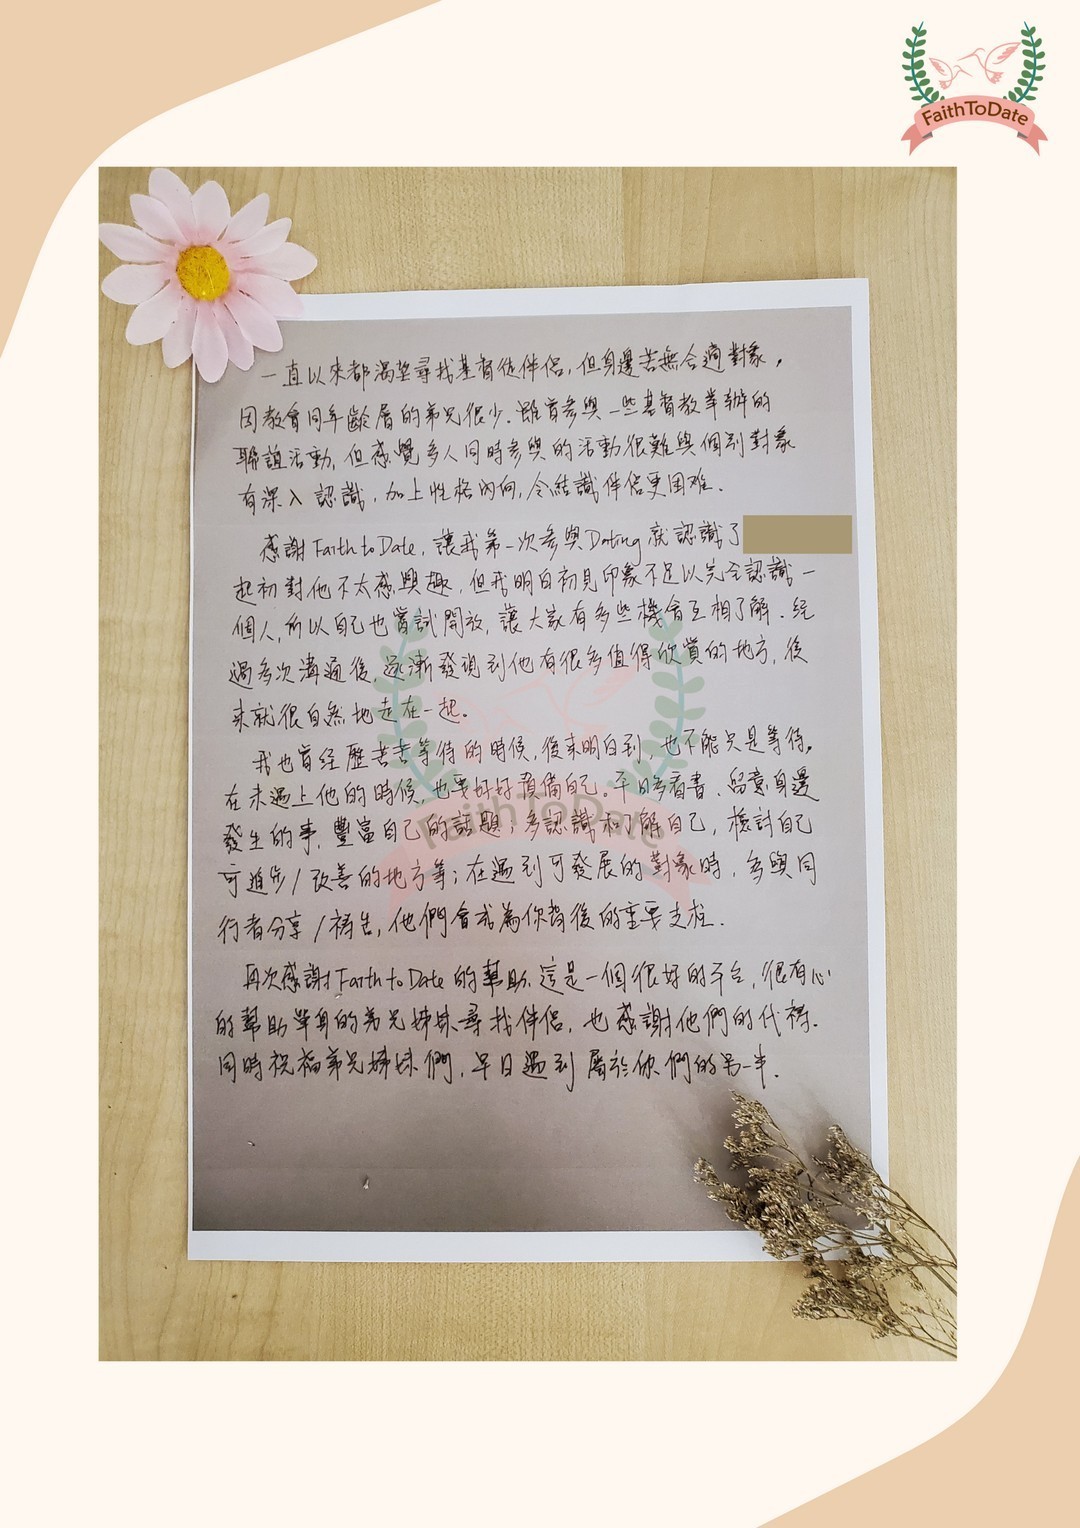 FaithToDate
一直以來都渴望尋找基督徒伴侶，但身邊苦無合適對象，
因教會同年齡層的弟兄很少．雖曾參與一些基督教舉辦的
聯誼活動，但感覺多人同時參與的活動很難與個別對象
有深入認識，加上性格內向，令結識伴侶更困难．
感謝 Faith to Date，讓我第一次參與Dating就認識了
起初對他不太感興趣，但我明白初見印象不足以完全認識一
個人，所以自己也嘗試開放，讓大家有多些機會互相了解．经
過多次溝通後，逐漸發現到他有很多值得欣賞的地方，後
來就很自然地走在一起。
我也曾经歷苦苦等待的時候，後來明白到，也不能只是等待，
在未遇上他的時候，也要好好預備自己。平日多看書、留意身邊
發生的事，豐富自己的話題；多認識和了解自己，檢討自己
可進步/改善的地方等；在遇到可發展的對象時，多與同
行者分享/禱告，他們會成為你背後的重要支柱．
FaithToDate
再次感謝Faith to Date 的幫助，這是一個很好的平台，很有心
的幫助單身的弟兄姊妹尋找伴侶，也感謝他們的代禱．
同時祝福弟兄姊妹們，早日遇到屬於你們的另一半．